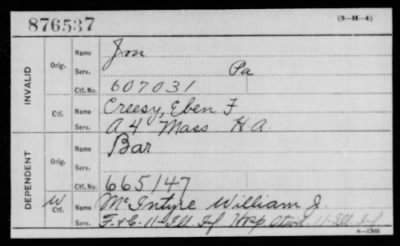 876537 (3-H-4)
INVALID
Orig.
Name Jon
Serv. Pa
Ctf. No. 607031
Ctf.
Name Creesy, Eben F
Serv. A 4 Mass H A.
DEPENDENT
Orig.
Name Bar
Serv.
Ctf. No. 665147
W Ctf.
Name McIntyre William J.
Serv. 11 Ill Inf Hosp 11 Ill Inf